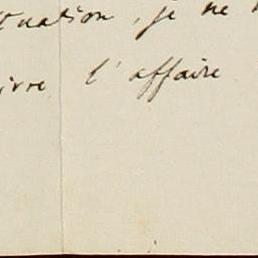 tuation, je ne
ivre l'affaire